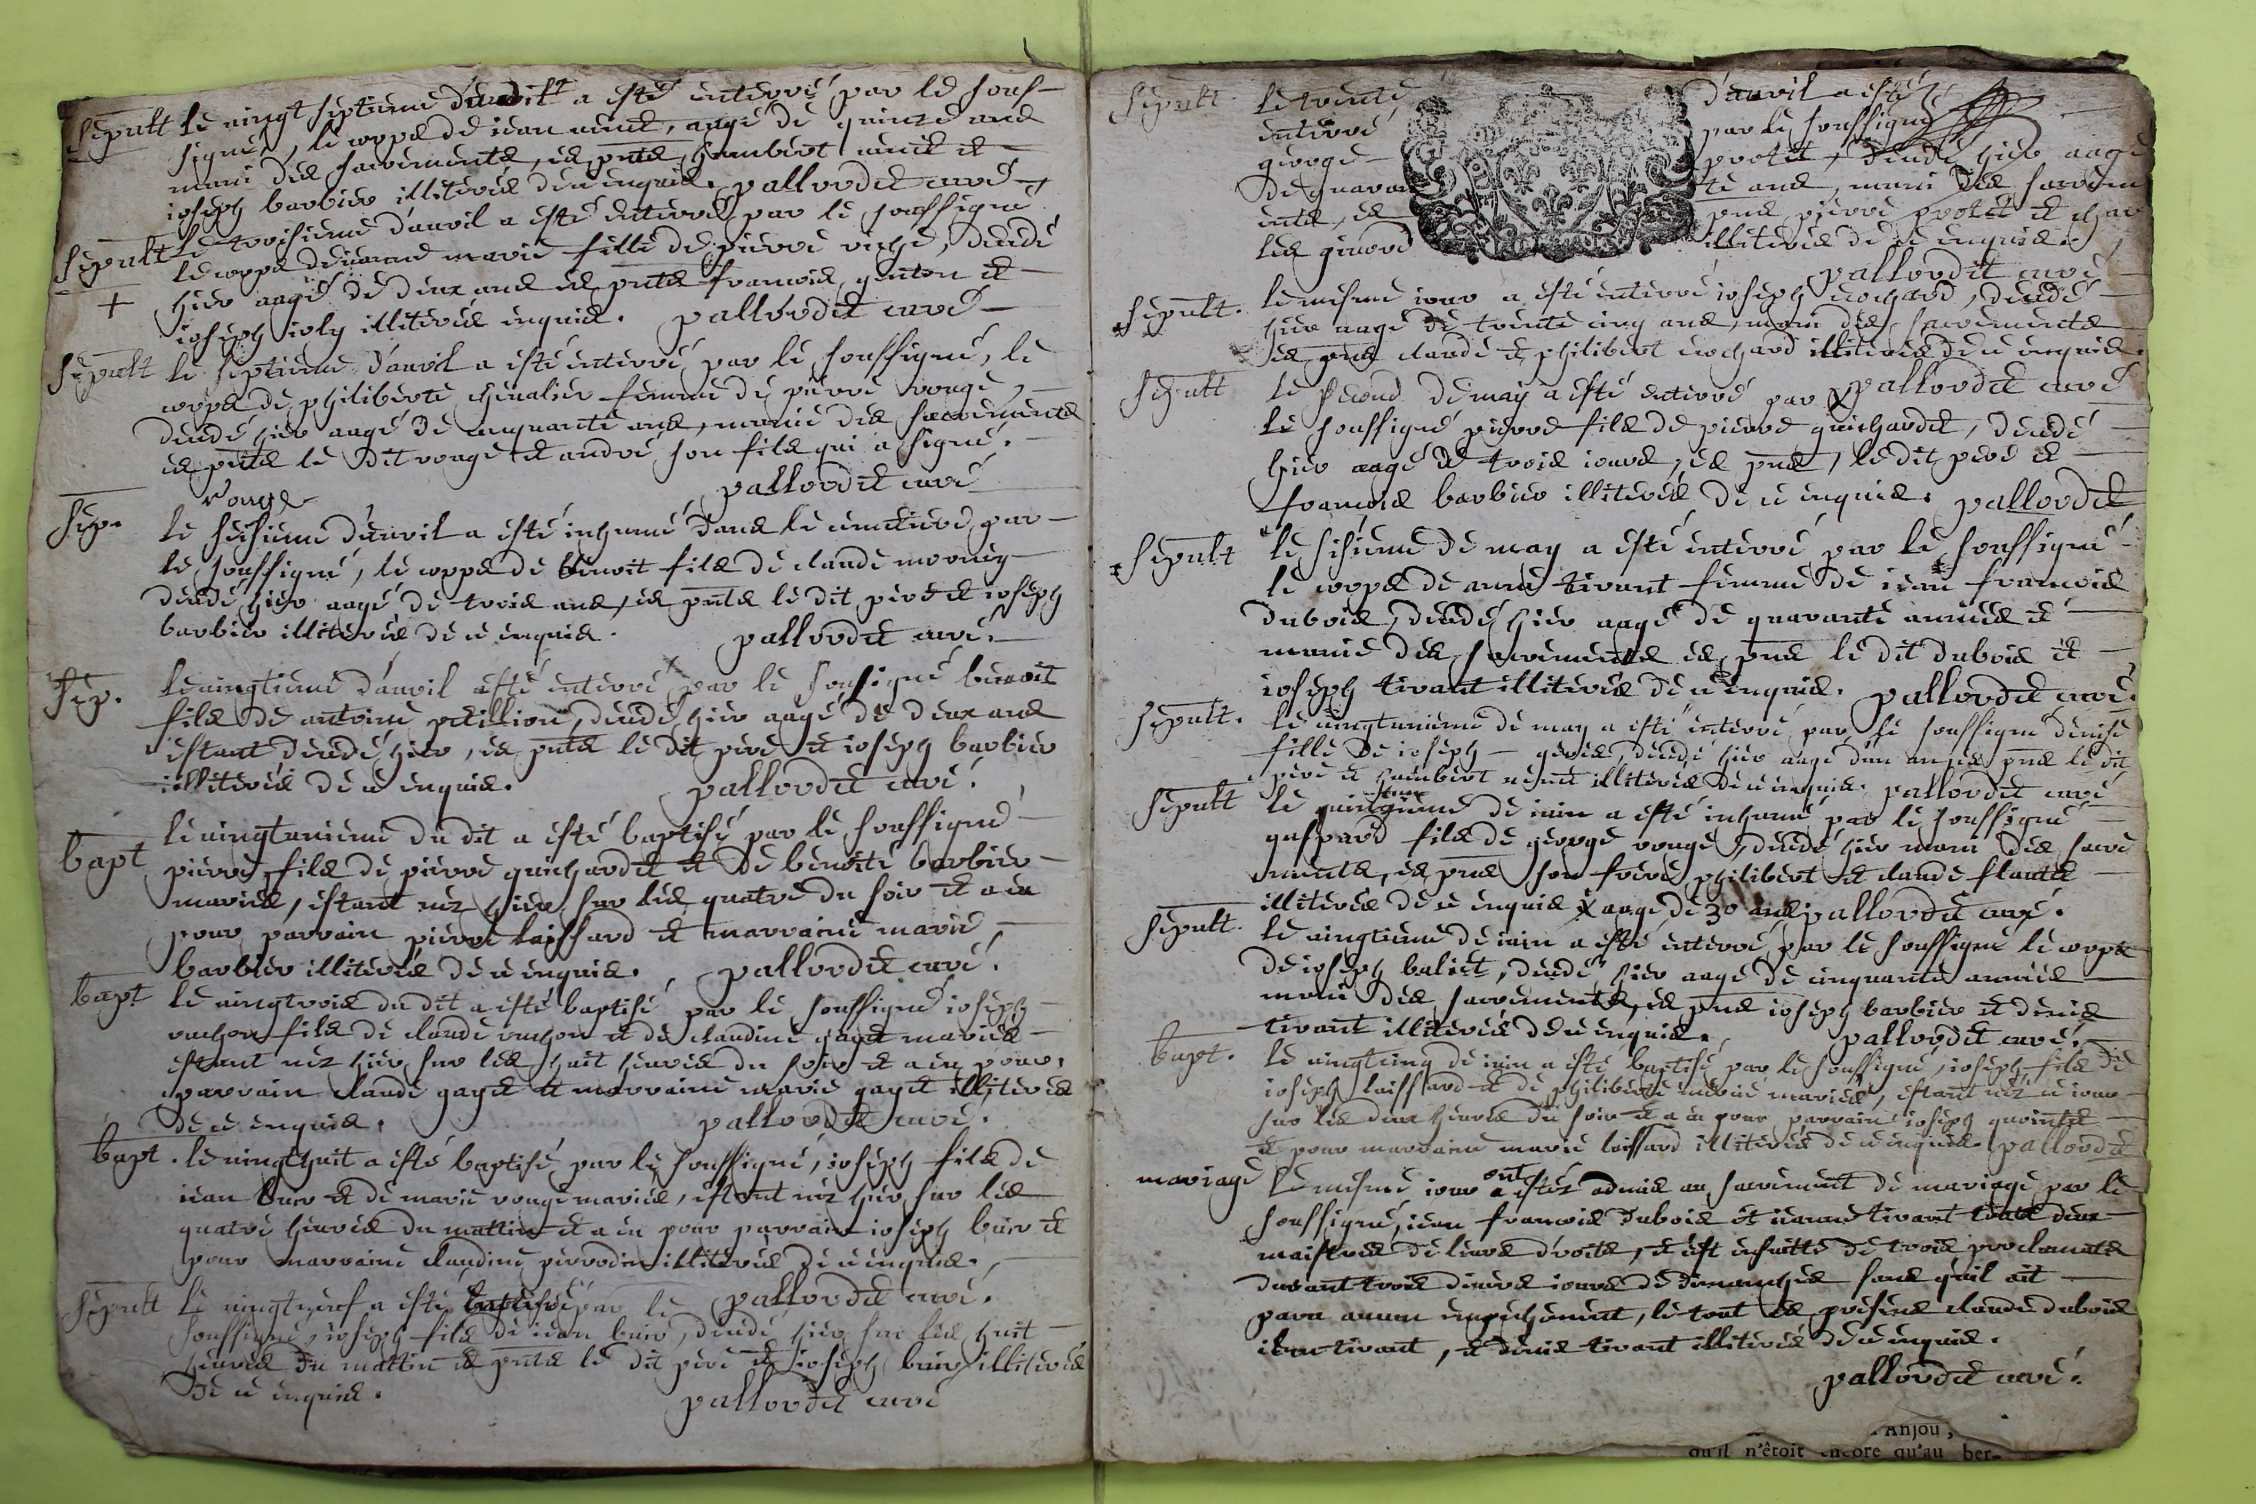 Sepult Le vingt septieme dudit a esté enterré par le sous-
signé, le corps de iean aagé de quinze ans
muni des sacrements, es pnts humbert et
ioseph barbier illiterés de ce enquis. pallordet curé
Sepult Le troisieme d'auril a esté enterré par le soussigné
le corps de ieanne marie fille de pierre decedé
+ hier aagé de deux ans es pnts francois et
ioseph ioly illiterés enquis. pallordet curé
Sepult Le septieme d'auril a esté enterré par le soussigné, le
corps de philiberte cheualier femme de pierre rouge,
decedé hier aagé de cinquante ans, munie des sacrements
es pnts le dit rouge et andré son fils qui a signé.
rouge pallordet curé
Sep. le sesieme d'auril a esté inhumé dans le cimetiere par
le soussigné, le corps de benoit fils de claude
decedé hier aagé de trois ans, es pnts le dit pere et ioseph
barbier illiterés de ce enquis. pallordet curé.
Sep. le vingtieme d'auril a esté enterré par le sousigné benoit
fils de antoine decedé hier aagé de deux ans
estant decedé hier, es pnts le dit pere et ioseph barbier
illiterés de ce enquis. pallordet curé.
bapt le vingtunieme du dit a esté baptisé par le soussigné
pierre, fils de pierre guichardet et de benoite barbier
mariés, estant nez hier sur les quatre du soir et a eu
pour parrain pierre laissard et marraine marie
barbier illiterés de ce enquis. pallordet curé.
bapt le vingtrois du dit a esté baptisé par le soussigné ioseph
rachon fils de claude rachon et de claudine gayet mariés
estant nez hier sur les huit heures du soir et a eu pour
parrain claude gayet et marraine marie gayet illiterés
de ce enquis. pallordet curé.
bapt. le vingthuit a esté baptisé par le soussigné, ioseph fils de
iean buir et de marie rouge mariés, estant nez hier sur les
quatre heures du mattin et a eu pour parrain ioseph buir et
pour marraine claudine perrodin illiterés de ce enquis.
pallordet curé.
Sepult Le vingtneuf a esté baptisé par le
soussigné, ioseph fils de iean buir, decedé hier sur les huit
heures du mattin es pnts le dit pere et ioseph buir illiterés
de ce enquis. pallordet curé
Sepult Le trente d'auril a esté
enterré par le soussigné
george protet, decedé hier aagé
de quaran te ans, muni des sacrem
ents, es pns pierre protet et char
les illiterés de ce enquis.
pallordet curé
Sepult. le mesme iour a esté enterré ioseph cochard, decedé
hier aagé de trente cinq ans, muni des sacrements
es pns claude et philibert cochard illiterés de ce enquis.
pallordet curé
Sepult le second de may a esté enterré par
le soussigné pierre fils de pierre guichardet, decedé
hier aagé de trois iours, es pns, le dit pere et
francois barbier illiterés de ce enquis. pallordet
Sepult le sisieme de may a esté enterré par le soussigné
le corps de anne tivant femme de iean francois
dubois, decedé hier aagé de quarante années et
munie des sacrements es pns le dit dubois et
ioseph tivant illiterés de ce enquis. pallordet curé.
Sepult. le vingtunieme de may a esté enterré par le soussigné denise
fille de ioseph decedé hier aagé d'un an es pns le dit
pere et humbert illiterés de ce enquis. pallordet curé
Sepult le de iuin a esté inhumé par le soussigné
gaspard fils de george rouge, decedé hier muni des sacre
ments, es pns son frere philibert et claude
illiterés de ce enquis X aagé de 30 ans pallordet curé.
Sepult. le vingtieme de iuin a esté enterré par le soussigné le corps
de ioseph decedé hier aagé de cinquante années
muni des sacrements, es pns ioseph barbier et denis
tivant illiterés de ce enquis. pallordet curé.
bapt. le vingtcinq de iuin a esté baptisé par le soussigné, ioseph fils de
ioseph laissard et de philiberte mariés, estant nez ce iour
sur les deux heures du soir et a eu pour parrain ioseph
et pour marraine marie laissard illiterés de ce enquis. pallordet
mariage Le mesme iour ont estéz admis au sacrement de mariage par le
soussigné, iean francois dubois et ieanne tivant touts deux
maistres de leurs droits, et est ensuitte de trois proclamats
durant trois diuers iours de dimanches sans qu'il ait
paru aucun empechement, le tout es presens claude dubois
iean tivant, et denis tivant illiterés de ce enquis.
pallordet curé.
Anjou,
qu'il n'étoit encore qu'au ber-